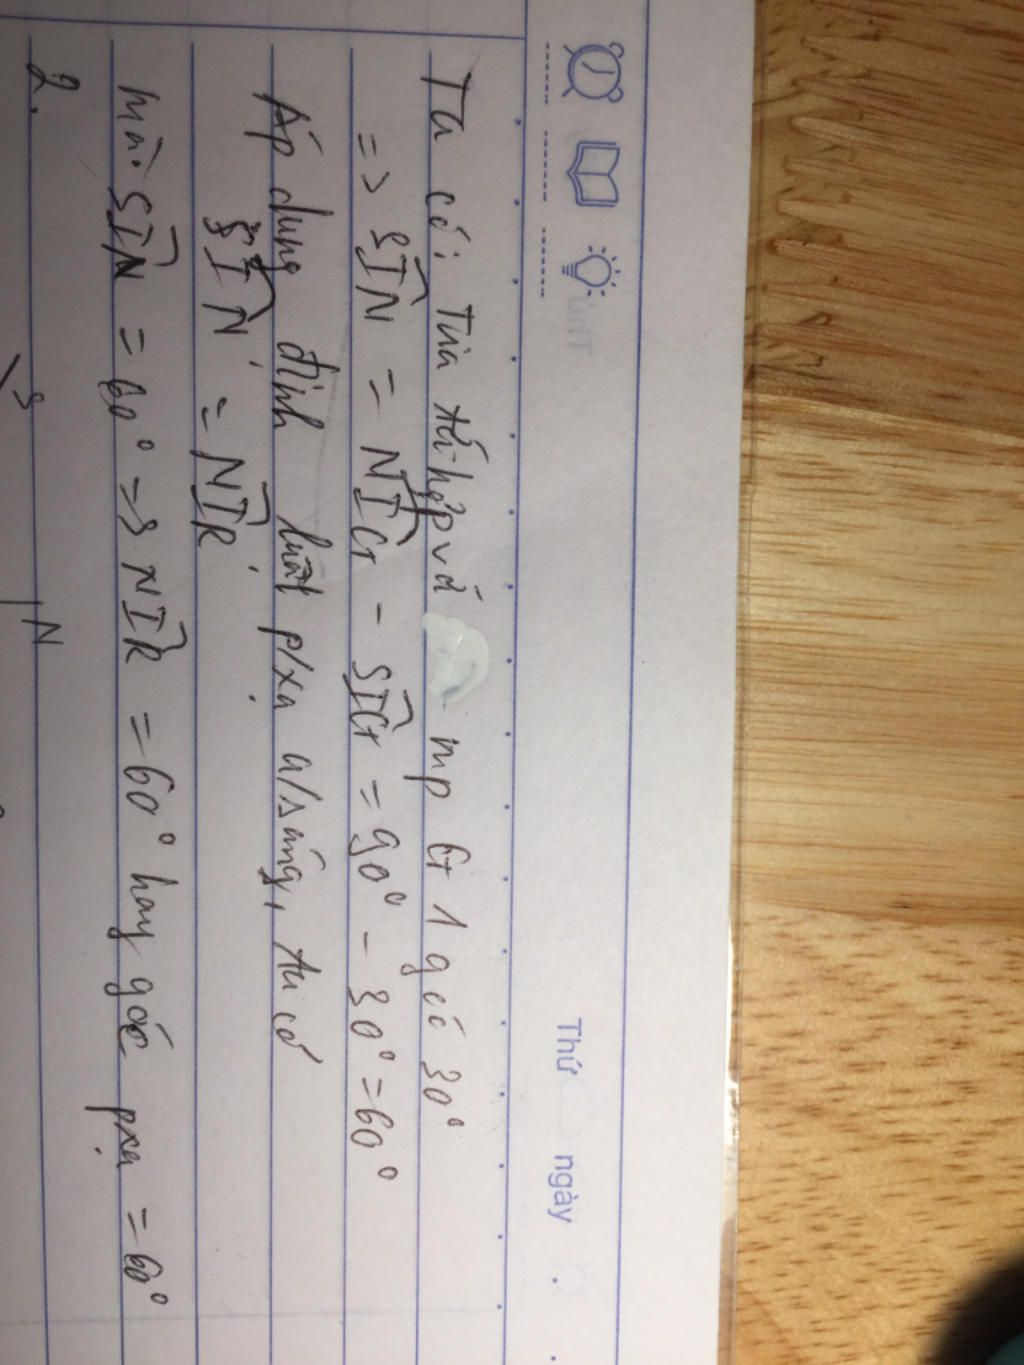 Thứ ngày
Ta có: Tia tới hợp vá mp G+ 1 góc 30°
=> SIN = NIG+ - SIG+ = 90° - 30° = 60°
Áp dụng định luật p/xạ a/sáng, ta có
SIN = NIR
mà: SIN = 60° => NIR = 60° hay góc pxạ = 60°
2.
S
N